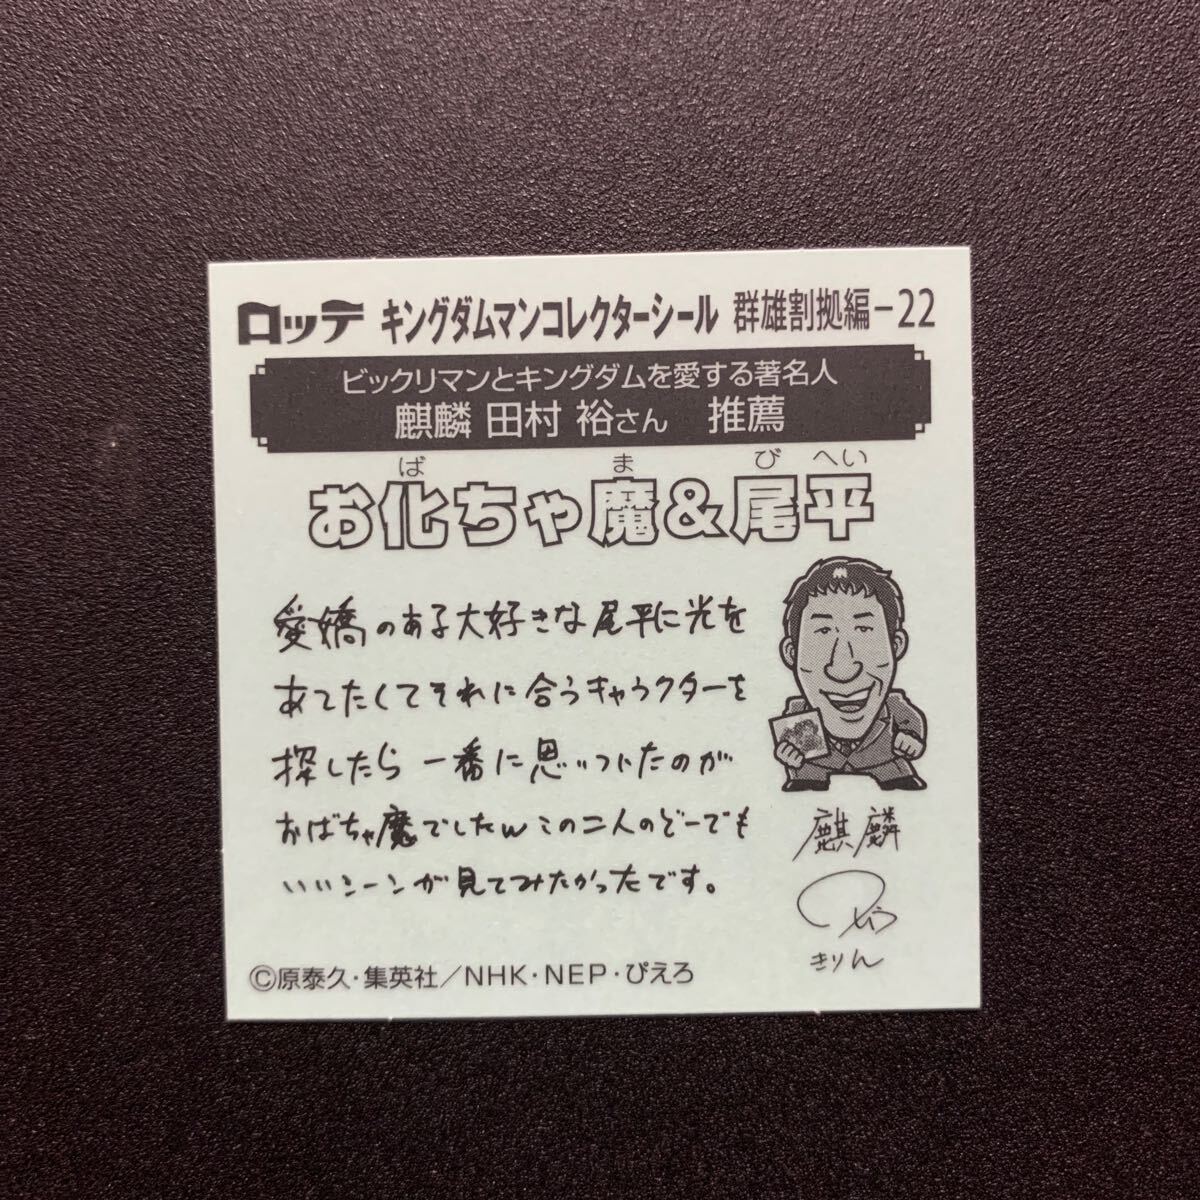 ロッテ キングダムマンコレクターシール 群雄割拠編−22
ビックリマンとキングダムを愛する著名人
麒麟 田村 裕さん 推薦
ば ま び へい
お化ちゃ魔&尾平
愛嬌のある大好きな尾平に光を
あてたくてそれに合うキャラクターを
探したら一番に思いついたのが
おばちゃ魔でしたw この二人のどーでも
いいシーンが見てみたかったです。
麒麟
きりん
©原泰久・集英社／NHK・NEP・ぴえろ